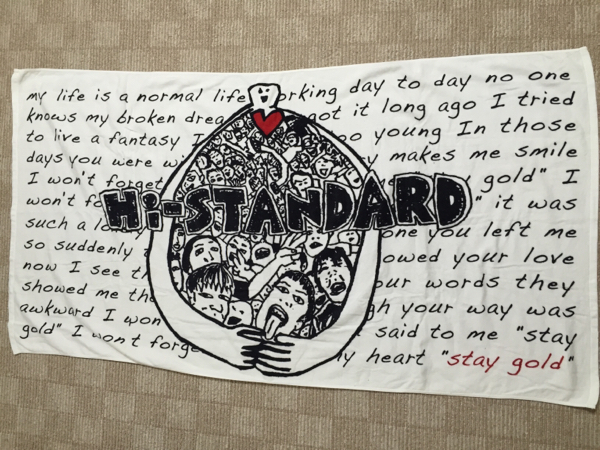 my life is a normal life orking day to day no one
knows my broken drea got it long ago I tried
to live a fantasy I oo young In those
days you were wi y makes me smile
I won't forget gold" I
won't fo " it was
Hi-STANDARD
such a lo one you left me
so suddenly owed your love
now I see th our words they
showed me th gh your way was
awkward I won said to me "stay
gold" I won't forge my heart "stay gold"